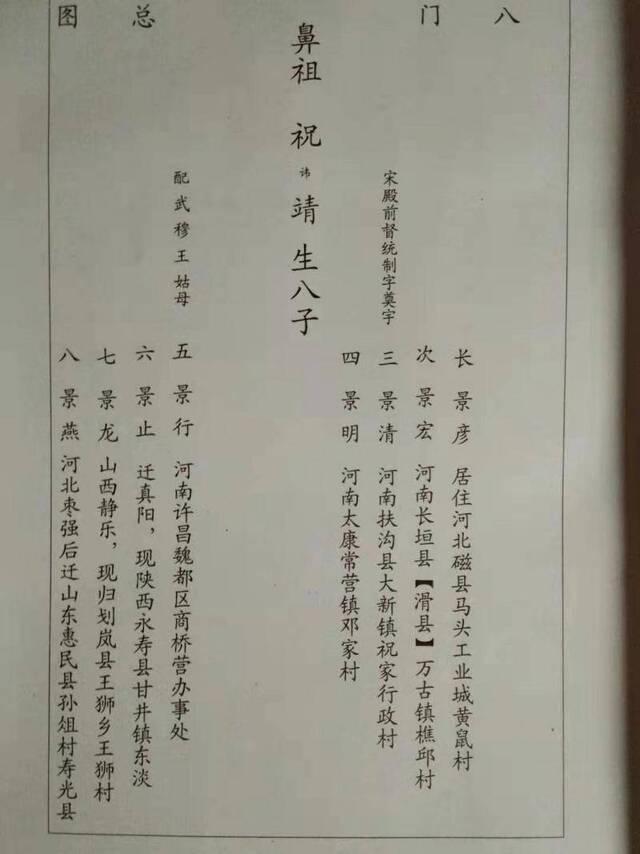 八门总图
宋殿前督统制字奠宇
鼻祖 祝 讳 靖 生八子
配武穆王姑母
长 景彦 居住河北磁县马头工业城黄鼠村
次 景宏 河南长垣县【滑县】万古镇樵邱村
三 景清 河南扶沟县大新镇祝家行政村
四 景明 河南太康常营镇邓家村
五 景行 河南许昌魏都区商桥营办事处
六 景止 迁真阳，现陕西永寿县甘井镇东淡
七 景龙 山西静乐，现归划岚县王狮乡王狮村
八 景燕 河北枣强后迁山东惠民县孙俎村寿光县